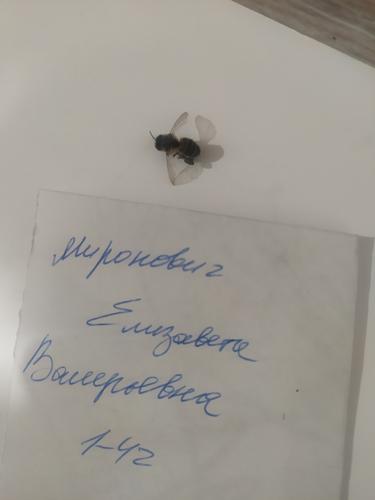 Миронович
Елизавета
Валерьевна
1-4г